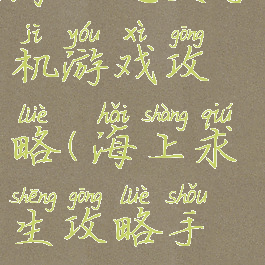 jī yóu xì gōng
机游戏攻
lüè hǎi shàng qiú
略(海上求
shēng gōng lüè shǒu
生攻略手